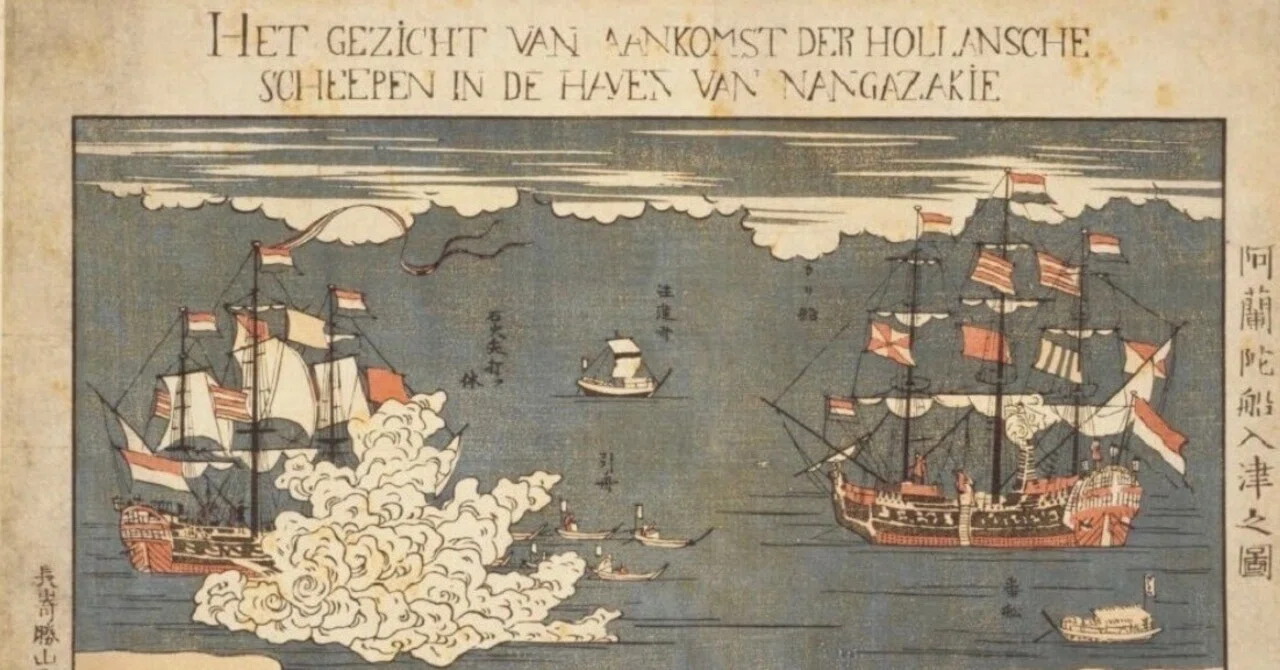 HET GEZICHT VAN AANKOMST DER HOLLANSCHE
SCHEEPEN IN DE HAVEN VAN NANGAZAKIE
阿蘭陀船入津之圖
注進舟
石火矢打ツ
体
引舟
番舩
長嵜勝山